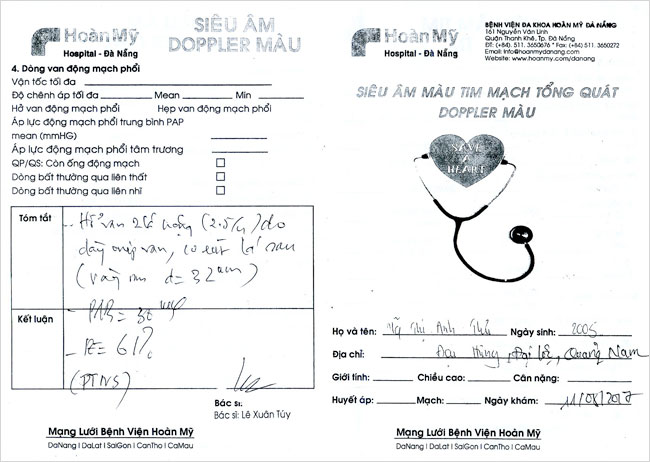 HoànMỹ
Hospital - Đà Nẵng
SIÊU ÂM
DOPPLER MÀU
4. Dòng van động mạch phổi
Vận tốc tối đa
Độ chênh áp tối đa Mean Min
Hở van động mạch phổi Hẹp van động mạch phổi
Áp lực động mạch phổi trung bình PAP
mean (mmHG)
Áp lực động mạch phổi tâm trương
QP/QS: Còn ống động mạch
Dòng bất thường qua liên thất
Dòng bất thường qua liên nhĩ
Tóm tắt
- Hở van 2 lá nặng (2.5/4) do
dày mép van, co rút lá sau
(vòng van d = 32mm)
Kết luận
- PAPs =
- EF = 61%
(PTNS)
Bác sĩ:
Bác sĩ: Lê Xuân Túy
Mạng Lưới Bệnh Viện Hoàn Mỹ
DaNang I DaLat I SaiGon I CanTho I CaMau
HoànMỹ
Hospital - Đà Nẵng
BỆNH VIỆN ĐA KHOA HOÀN MỸ ĐÀ NẴNG
161 Nguyễn Văn Linh
Quận Thanh Khê, Tp. Đà Nẵng
ĐT: (+84). 511. 3650676 * Fax: (+84) 511. 3650272
Email: contactus.danang@hoanmy.com
Website: www.hoanmy.com/danang
SIÊU ÂM MÀU TIM MẠCH TỔNG QUÁT
DOPPLER MÀU
SAVE
A
HEART
Họ và tên: Thị Anh Thư Ngày sinh: 2005
Địa chỉ: Đại Hưng, Đại Lộc, Quảng Nam
Giới tính: Chiều cao: Cân nặng:
Huyết áp: Mạch: Ngày khám: 11/08/2017
Mạng Lưới Bệnh Viện Hoàn Mỹ
DaNang I DaLat I SaiGon I CanTho I CaMau